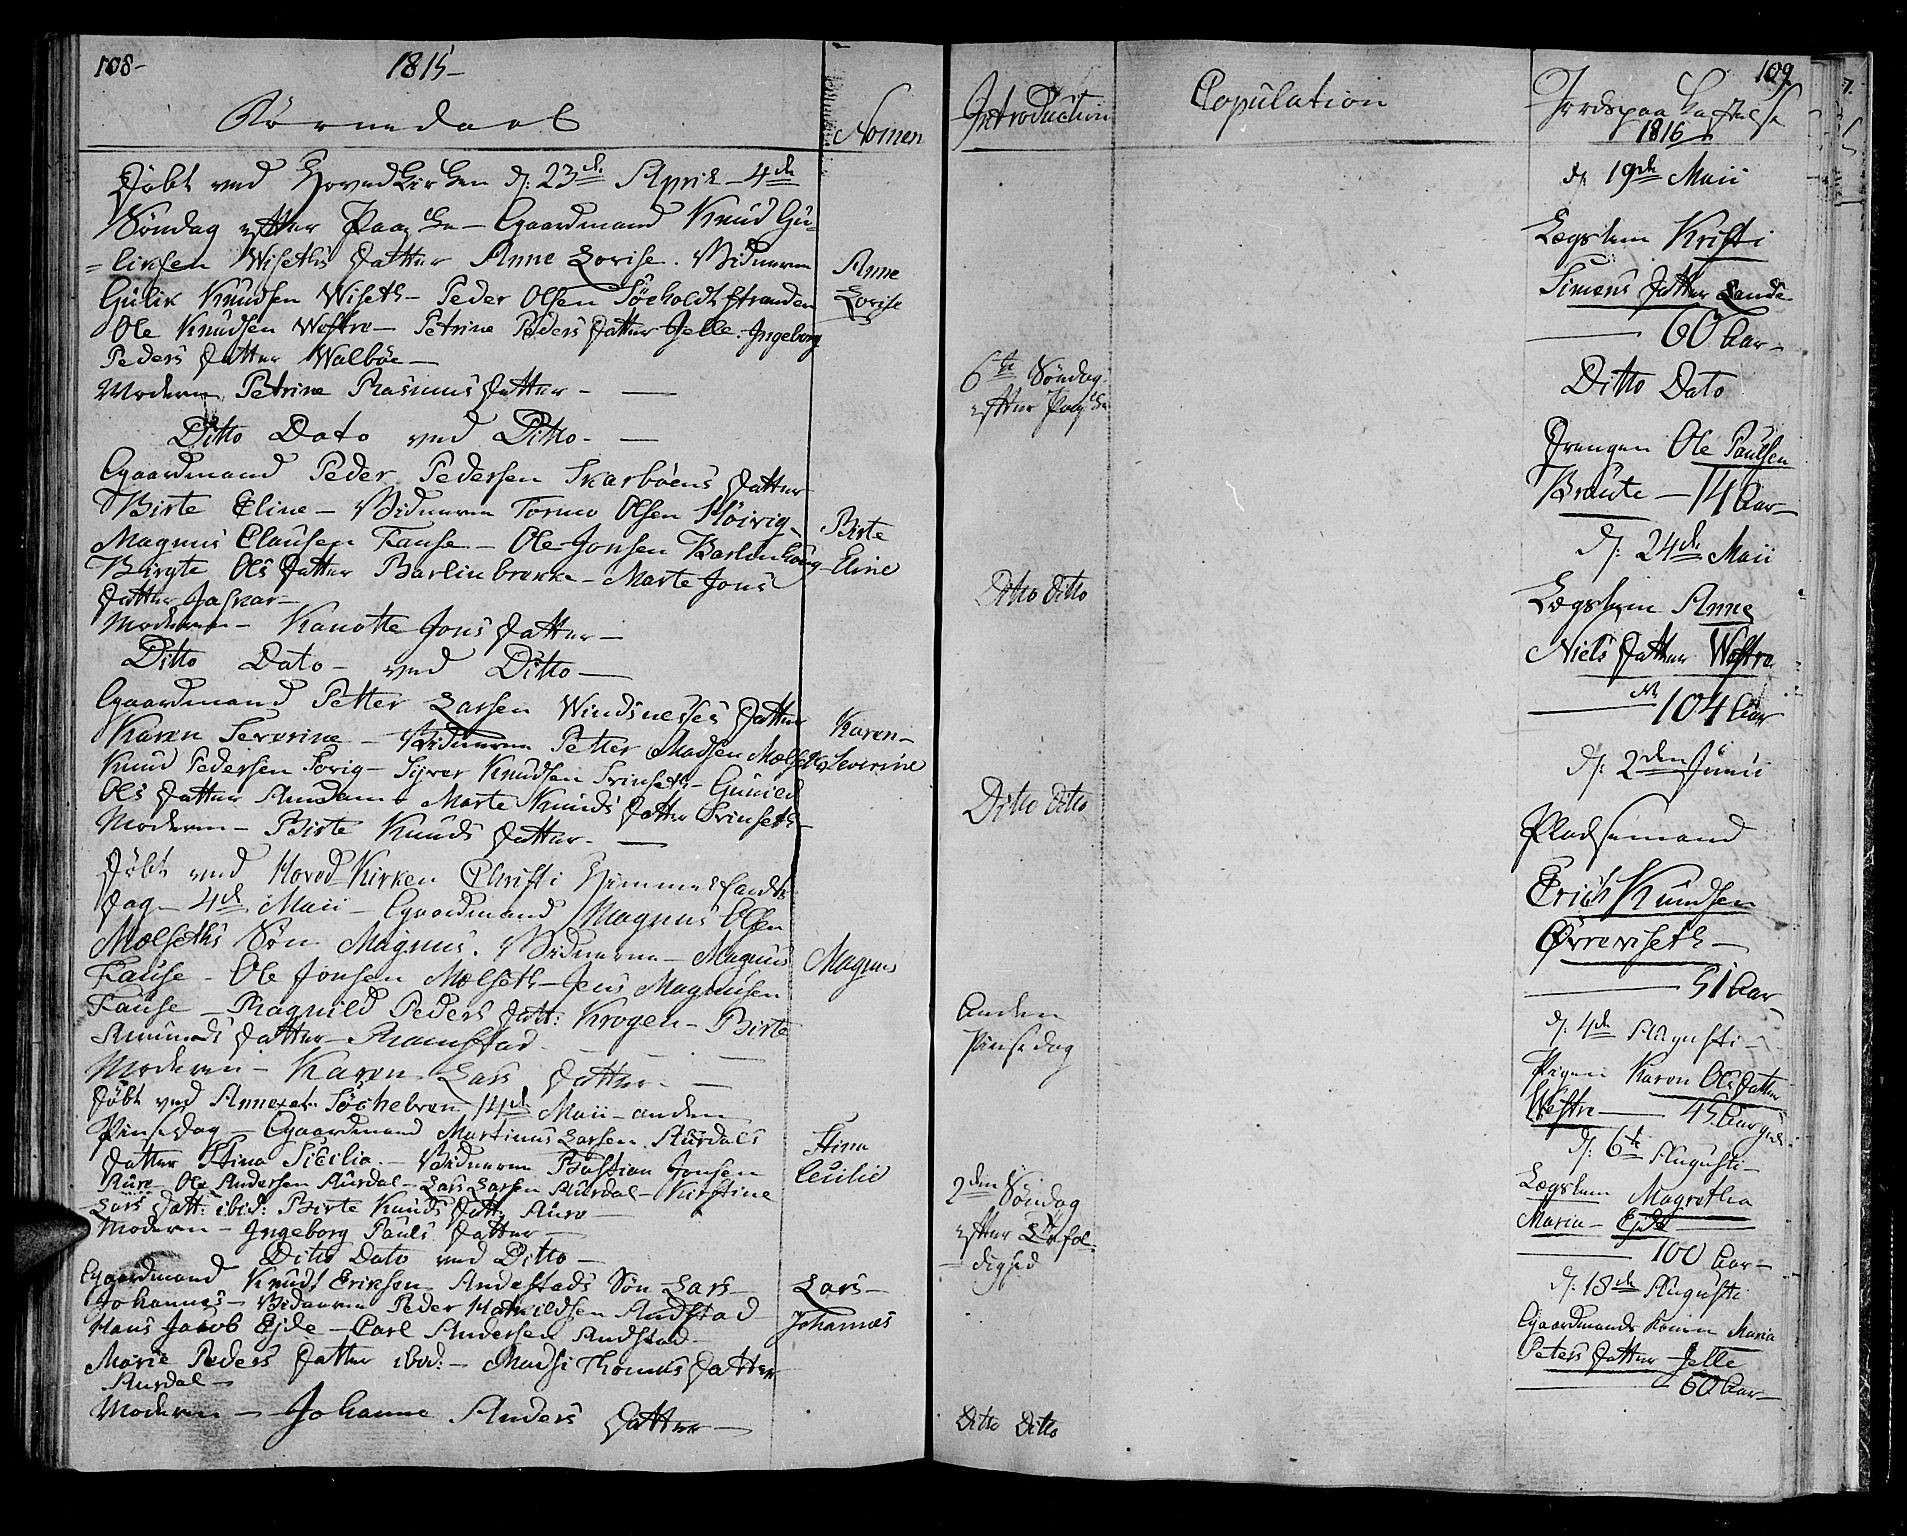 108-
1815-
Børnedaab
Nomen
Døbt ved Hovedkirken d: 23de April - 4de
Søndag efter Paaske - Gaardmand Knud Gu-
=liksen Wiseths Datter Anne Lovise. Vidnerne
Gulik Knudsen Wiseth - Peder Olsen Søeholdtstranden
Ole Knudsen Westre - Petrine Peders Datter Jelle. Ingeborg
Peders Datter Walbøe -
Moderen Petrine Rasmus Datter -
Anne
Lovise
Ditto Dato ved Ditto -
Gaardmand Peder Pedersen Skarbøens Datter
Birte Eline - Vidnerne Tormo Olsen Høivig -
Magnus Clausen Fause - Ole Jonsen Barlinhoug
Birgte Ols Datter Barlinbrekke - Marte Jons
Datter
Moderen - Kanotte Jons Datter -
Birte
Eline
Ditto Dato - ved Ditto -
Gaardmand Petter Larsen Windsnesses Datter
Karen Severine - Vidnerne Petter Madsen Melseth
Knud Pedersen - Syver Knudsen Svinseth - Gunild
Ols Datter Amdam - Marte Knuds Datter Svinseth -
Moderen - Birte Knuds Datter -
Karen -
Severine
Døbt ved Hoved Kirken Christi Himmelfarts
Dag - 4de Maii - Gaardmand Magnus Olsen
Melseths Søn Magnus. Vidnerne - Magnus
Fause - Ole Jonsen Melseth - Jens Magnusen
Fause - Ragnild Peders Datt: Krogen - Birte
Amunds Datter Ramstad -
Moderen - Karen Lars Datter -
Magnus
Døbt ved Annexet Søeholven 14de Maii - anden
Pinsedag - Gaardmand Martinus Larsen Aurdals
Datter Stina Sicilia - Vidnerne Bastian Jonsen
Aure - Ole Andersen Aurdal - Lars Larsen Aurdal - Kirstine
Lars Datt: ibid: Birte Knuds Datt: Aure -
Moderen - Ingeborg Pauls Datter -
Stina
Cecilie
Ditto Dato ved Ditto -
Gaardmand Knud Eriksen Andestads Søn Lars -
Johannes - Vidnerne Peder Andstad
Hans Jacob Ejde - Carl Andersen Andstad -
Marie Peders Datter ibid: - Madsi Thomas Datter
Aurdal -
Moderen - Johanne Anders Datter -
Lars -
Johannes
Introduction
6te Søndag
efter Paaske
Ditto Ditto
Ditto Ditto
Anden
Pinsedag
2den Søndag
efter Trefol-
- dighed
Ditto Ditto
Copulation
109
Jordspaa Kastelse
1816
d: 19de Maii
Lægslem Kristi
Simens Datter Lande
60 Aar -
Ditto Dato
Drengen Ole Paulsen
Braute - 14 Aar -
d: 24de Maii
Lægslem Anne
Niels Datter Westre
104 Aar
d: 2den Junii
Pladsemand
Erich Knudsen
Øvreviseth -
51 Aar
d: 4de Augusti -
Pigen Karen Ols Datter
Westre - 45 Aar
d: 6te Augusti -
Lægslem Magretha
Maria - Ejde
100 Aar -
d: 18de Augusti
Gaardmands Konen Maria
Peters Datter Jelle
60 Aar -